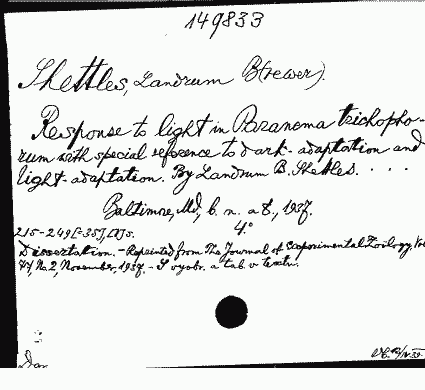 149833
Shettles, Landrum B(rewer).
Response to light in Peranema trichopho-
rum with special reference to dark-adaptation and
light-adaptation. By Landrum B. Shettles. . . .
Baltimore, Md, b. n. a t., 1937.
4°
215-249[-35], [1]s.
Dissertation. - Reprinted from The Journal of Experimental Zoölogy, Vol
77, No. 2, November, 1937. - S vyobr. a tab. v textu.